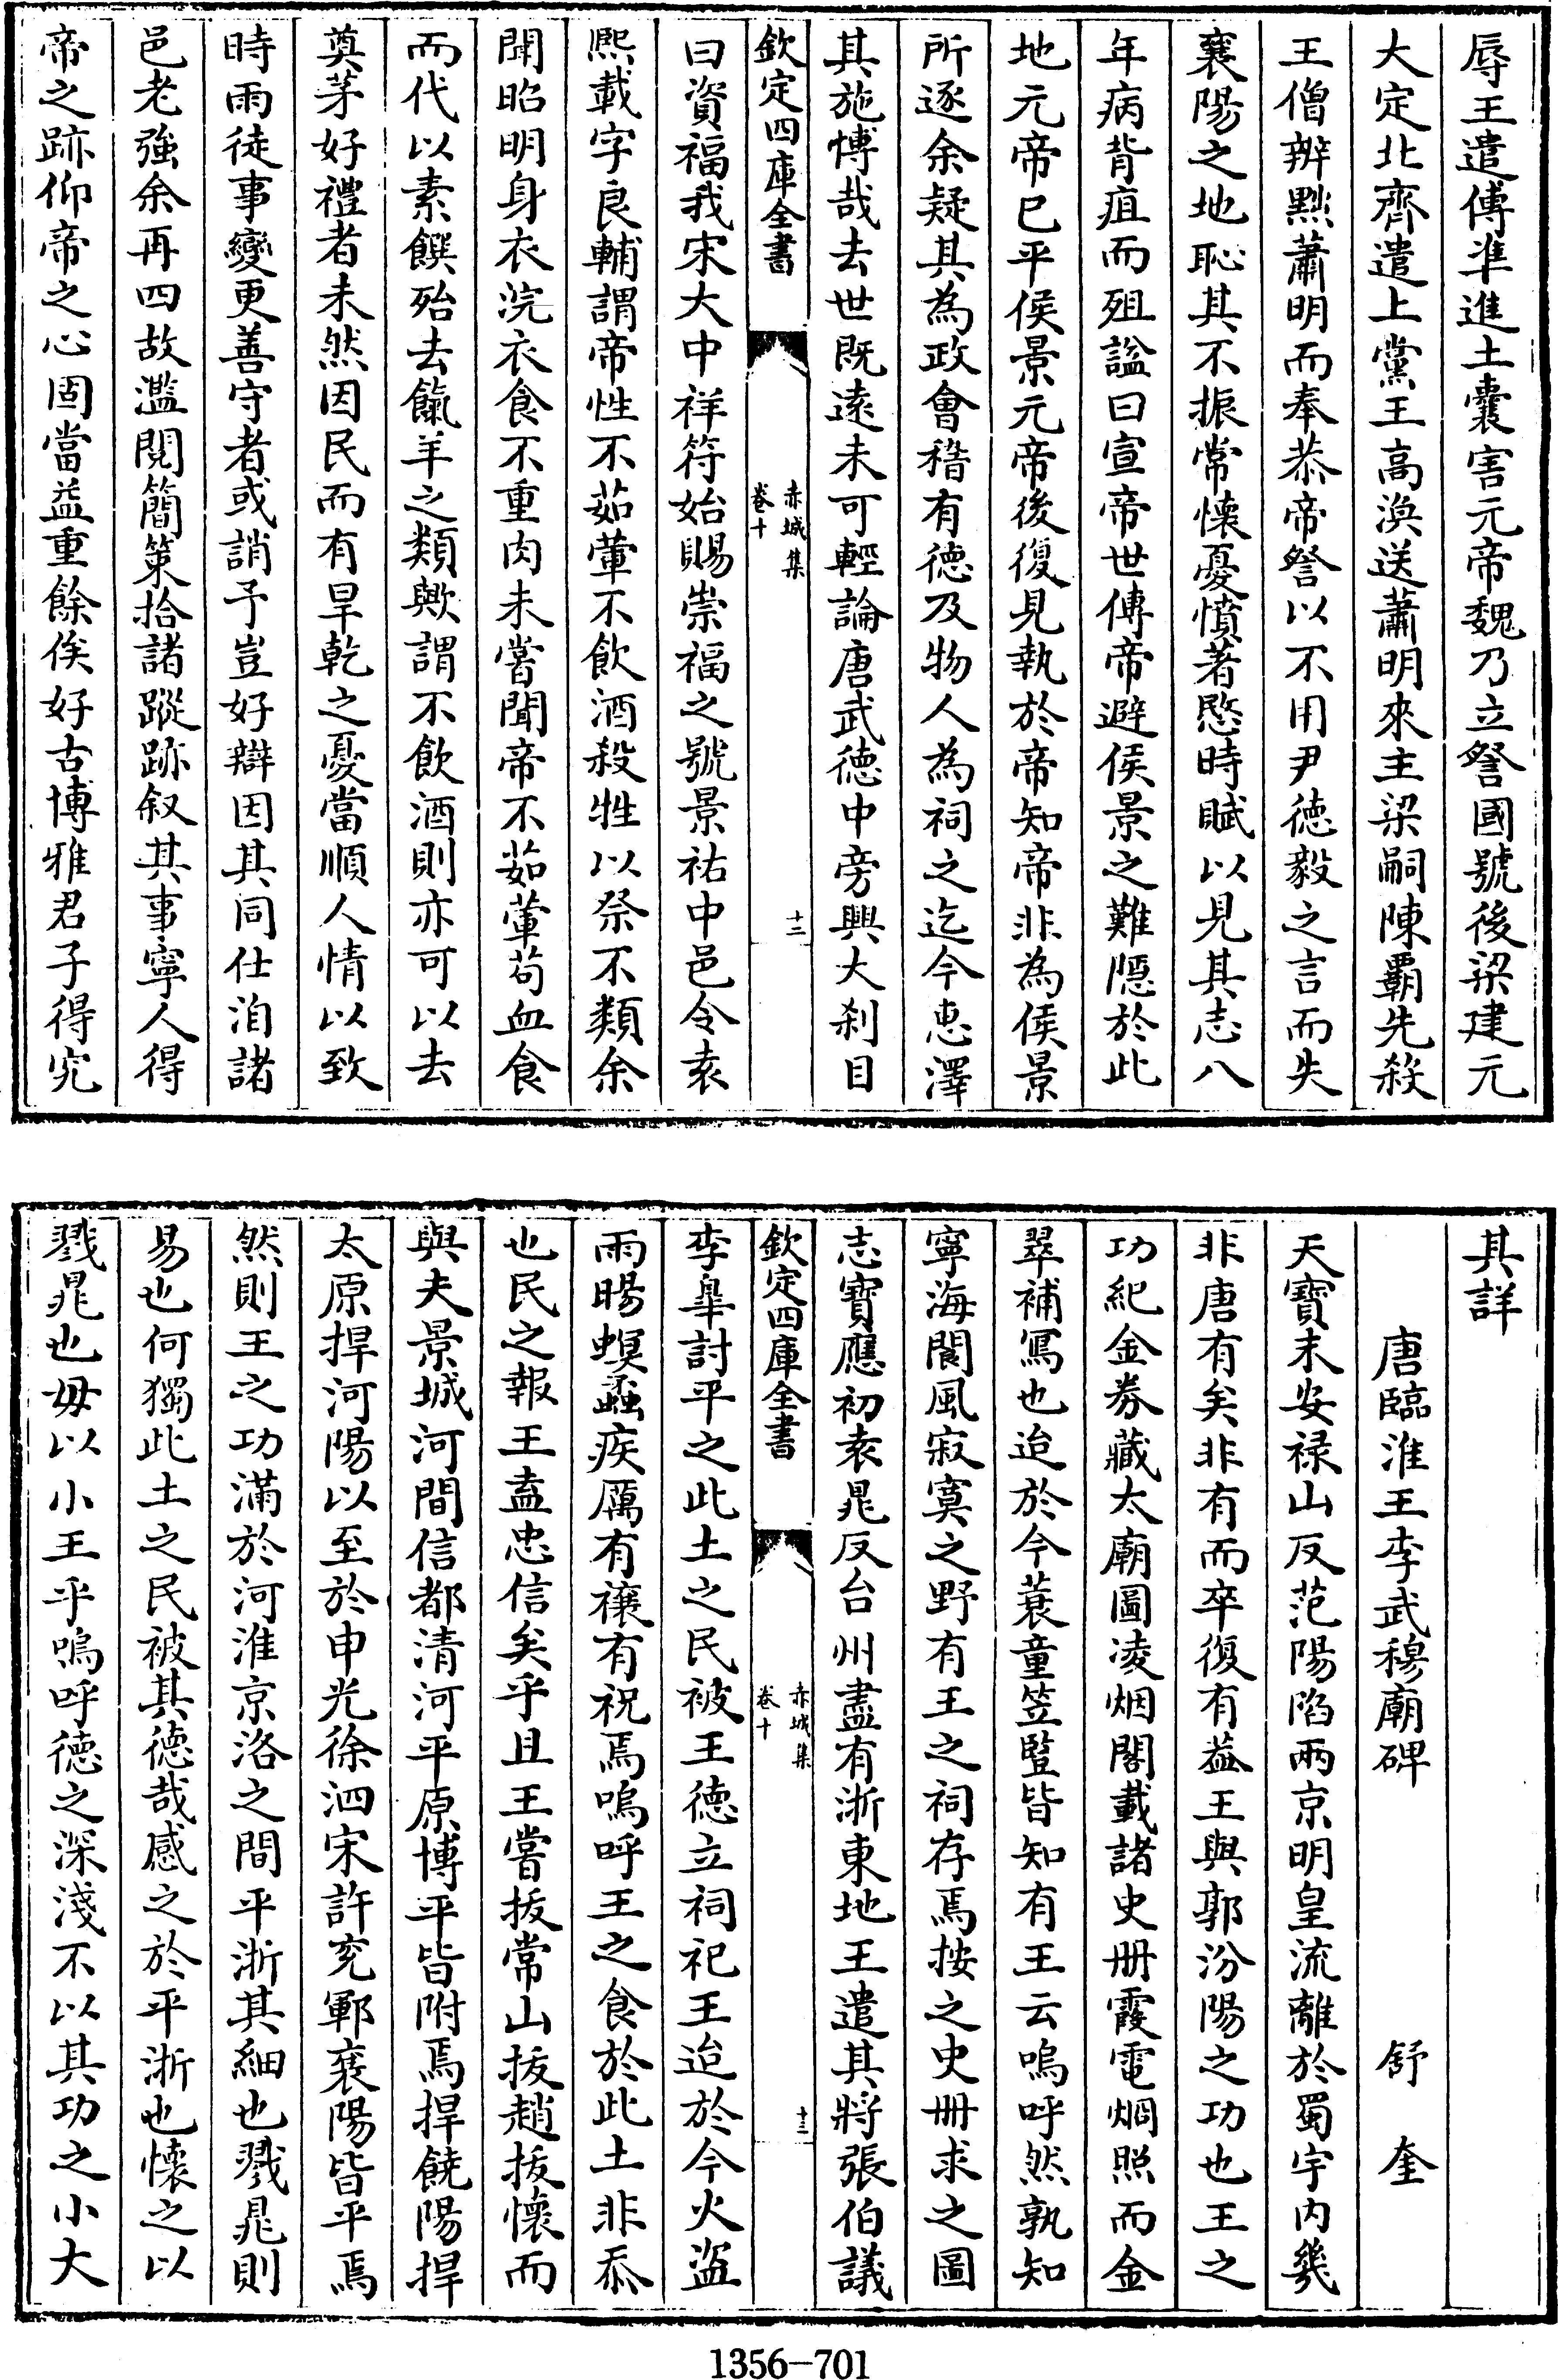 辱王遣傅準進土囊害元帝魏乃立詧國號後梁建元
大定北齊遣上黨王高渙送蕭明來主梁嗣陳霸先殺
王僧辨黜蕭明而奉恭帝詧以不用尹德毅之言而失
襄陽之地恥其不振常懷憂憤著愍時賦以見其志八
年病背疽而殂諡曰宣帝世傳帝避侯景之難隱於此
地元帝已平侯景元帝後復見執於帝知帝非為侯景
所逐余疑其為政會稽有德及物人為祠之迄今惠澤
其施博哉去世既遠未可輕論唐武德中旁興大刹目
欽定四庫全書
赤城集
卷十
十二
曰資福我宋大中祥符始賜崇福之號景祐中邑令袁
熙載字良輔謂帝性不茹葷不飲酒殺牲以祭不類余
聞昭明身衣浣衣食不重肉未嘗聞帝不茹葷苟血食
而代以素饌殆去餼羊之類歟謂不飲酒則亦可以去
奠茅好禮者未然因民而有旱乾之憂當順人情以致
時雨徒事變更善守者或誚予豈好辯因其同仕洎諸
邑老強余再四故濫閱簡策拾諸蹤跡叙其事寧人得
帝之跡仰帝之心固當益重餘俟好古博雅君子得究
其詳
唐臨淮王李武穆廟碑
舒奎
天寶末安禄山反范陽陷兩京明皇流離於蜀宇内幾
非唐有矣非有而卒復有葢王與郭汾陽之功也王之
功紀金券藏太廟圖凌烟閣載諸史册霞電烱照而金
翠補寫也迨於今蓑童笠豎皆知有王云嗚呼然孰知
寧海閬風寂寞之野有王之祠存焉按之史冊求之圖
志寶應初袁晁反台州盡有浙東地王遣其將張伯議
欽定四庫全書
赤城集
卷十
十三
李臯討平之此土之民被王德立祠祀王迨於今火盜
雨暘螟蟊疾厲有禳有祝焉嗚呼王之食於此土非忝
也民之報王盍忠信矣乎且王嘗拔常山拔趙拔懷而
與夫景城河間信都清河平原博平皆附焉捍饒陽捍
太原捍河陽以至於申光徐泗宋許兖鄆襄陽皆平焉
然則王之功滿於河淮京洛之間平浙其細也戮晁則
易也何獨此土之民被其德哉感之於平浙也懷之以
戮晁也毋以小王乎嗚呼德之深淺不以其功之小大
1356-701